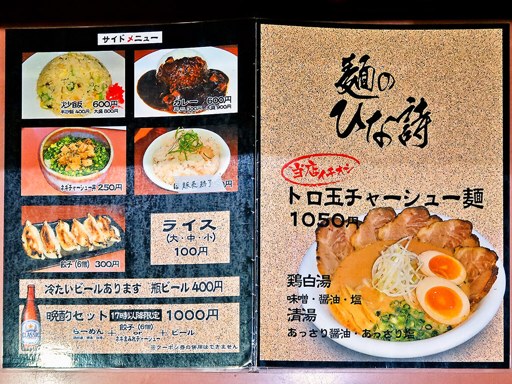 サイドメニュー
炒飯 600円
カレー 600円
ネギチャーシュー丼 250円
餃子(6個) 300円
ライス
(大・中・小)
100円
冷たいビールあります 瓶ビール400円
晩酌セット 17時以降限定 1000円
らーめん + 餃子(6個) or ネギまみれチャーシュー + ビール
※クーポン券の併用はできません
麺の
ひな詩
当店イチオシ
トロ玉チャーシュー麺
1050円
鶏白湯
味噌・醤油・塩
清湯
あっさり醤油・あっさり塩